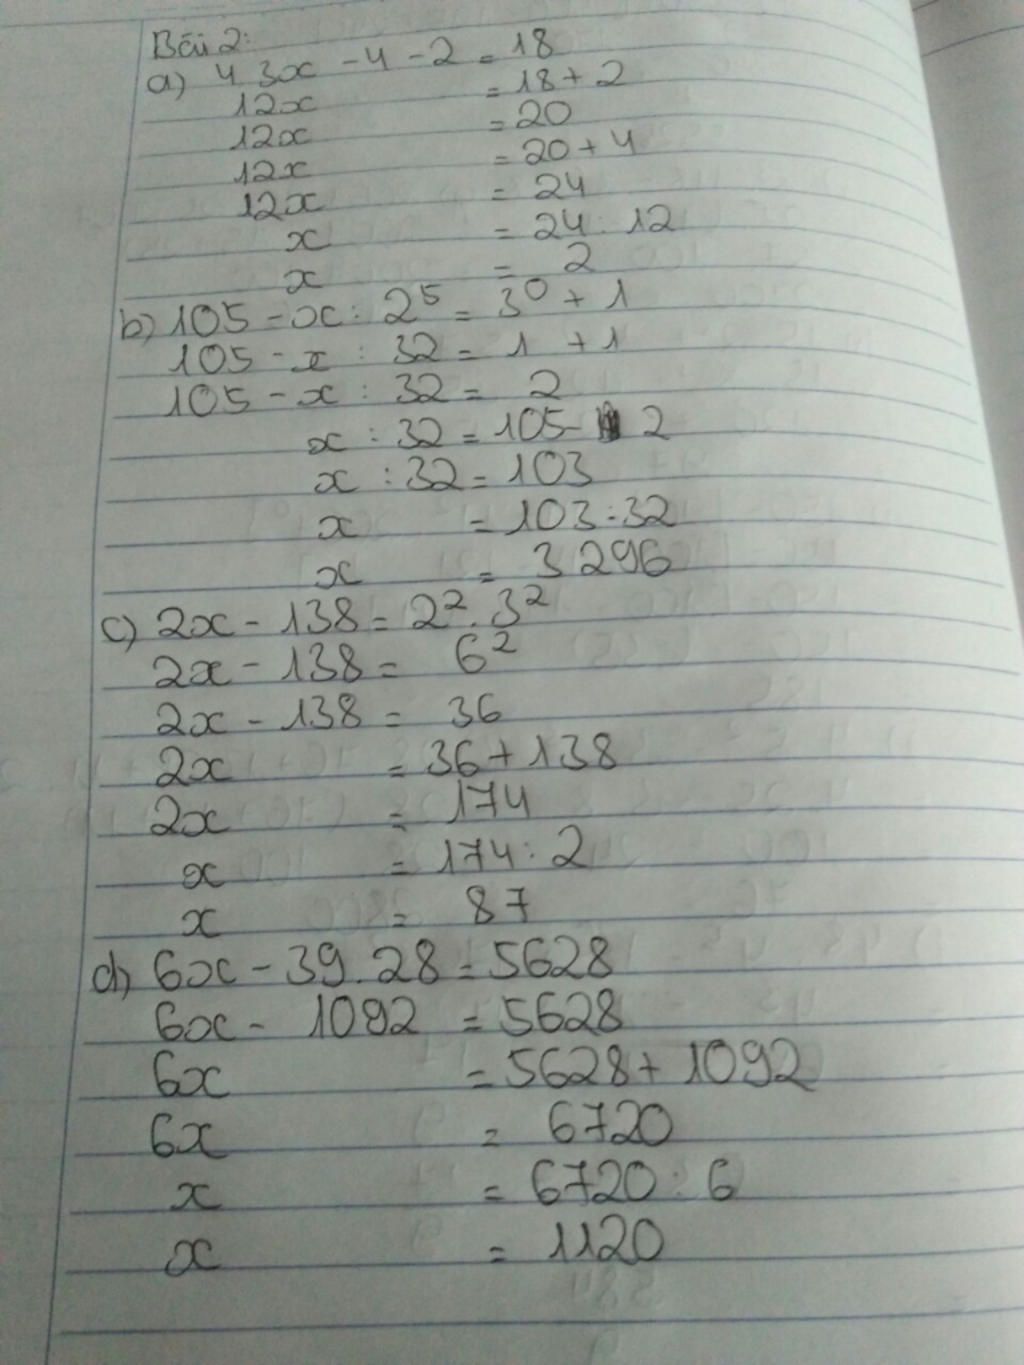 Bài 2:
a) 4 3x - 4 - 2 = 18
12x = 18 + 2
12x = 20
12x = 20 + 4
12x = 24
x = 24 : 12
x = 2
b) 105 - x : 2⁵ = 3⁰ + 1
105 - x : 32 = 1 + 1
105 - x : 32 = 2
x : 32 = 105 - 2
x : 32 = 103
x = 103 . 32
x = 3296
c) 2x - 138 = 2² . 3²
2x - 138 = 6²
2x - 138 = 36
2x = 36 + 138
2x = 174
x = 174 : 2
x = 87
d) 6x - 39 . 28 = 5628
6x - 1092 = 5628
6x = 5628 + 1092
6x = 6720
x = 6720 : 6
x = 1120